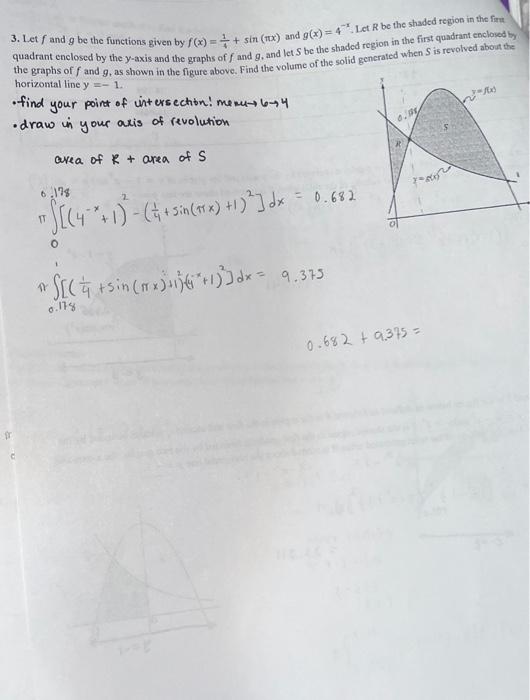 3. Let f and g be the functions given by f(x) = 1/4 + sin (πx) and g(x) = 4^-x. Let R be the shaded region in the first
quadrant enclosed by the y-axis and the graphs of f and g, and let S be the shaded region in the first quadrant enclosed by
the graphs of f and g, as shown in the figure above. Find the volume of the solid generated when S is revolved about the
horizontal line y = - 1.
•find your point of intersection! menu→6→4
•draw in your axis of revolution
area of R + area of S
0.178
π ∫ [(4^-x + 1)^2 - (1/4 + sin(πx) + 1)^2] dx = 0.682
0
1
π ∫ [(1/4 + sin(πx) + 1)^2 (4^-x + 1)^2] dx = 9.375
0.178
0.682 + 9.375 =
y
0.178
y=f(x)
S
R
y=g(x)
1
0